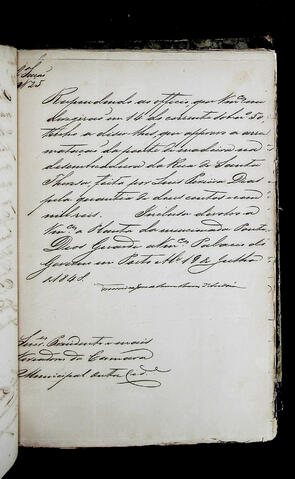 Nº 25
Respondendo ao officio que Vm.ces me
dirigirão em 14 do corrente sob nº 50,
tenho a dizer-lhes, que approvo a arre
matação da ponte de madeira na
desembocadura da Rua de Santa
Thereza feita por Luis Pereira Dias
pela quantia de dous contos e cem
mil reis. Incluso devolvo a
Vm.ces a Planta da mencionada Ponte.
Deos Guarde a Vm.ces Palacio do
Governo em Porto Al.e 19 de Julho
1848.
Snr.es Presidente e mais
Vereadores da Camara
Municipal desta Cid.e